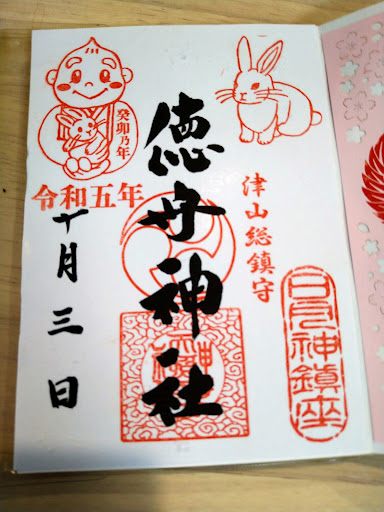 津山総鎮守
日月神鎮座
徳守神社
癸卯乃年
令和五年
十月三日